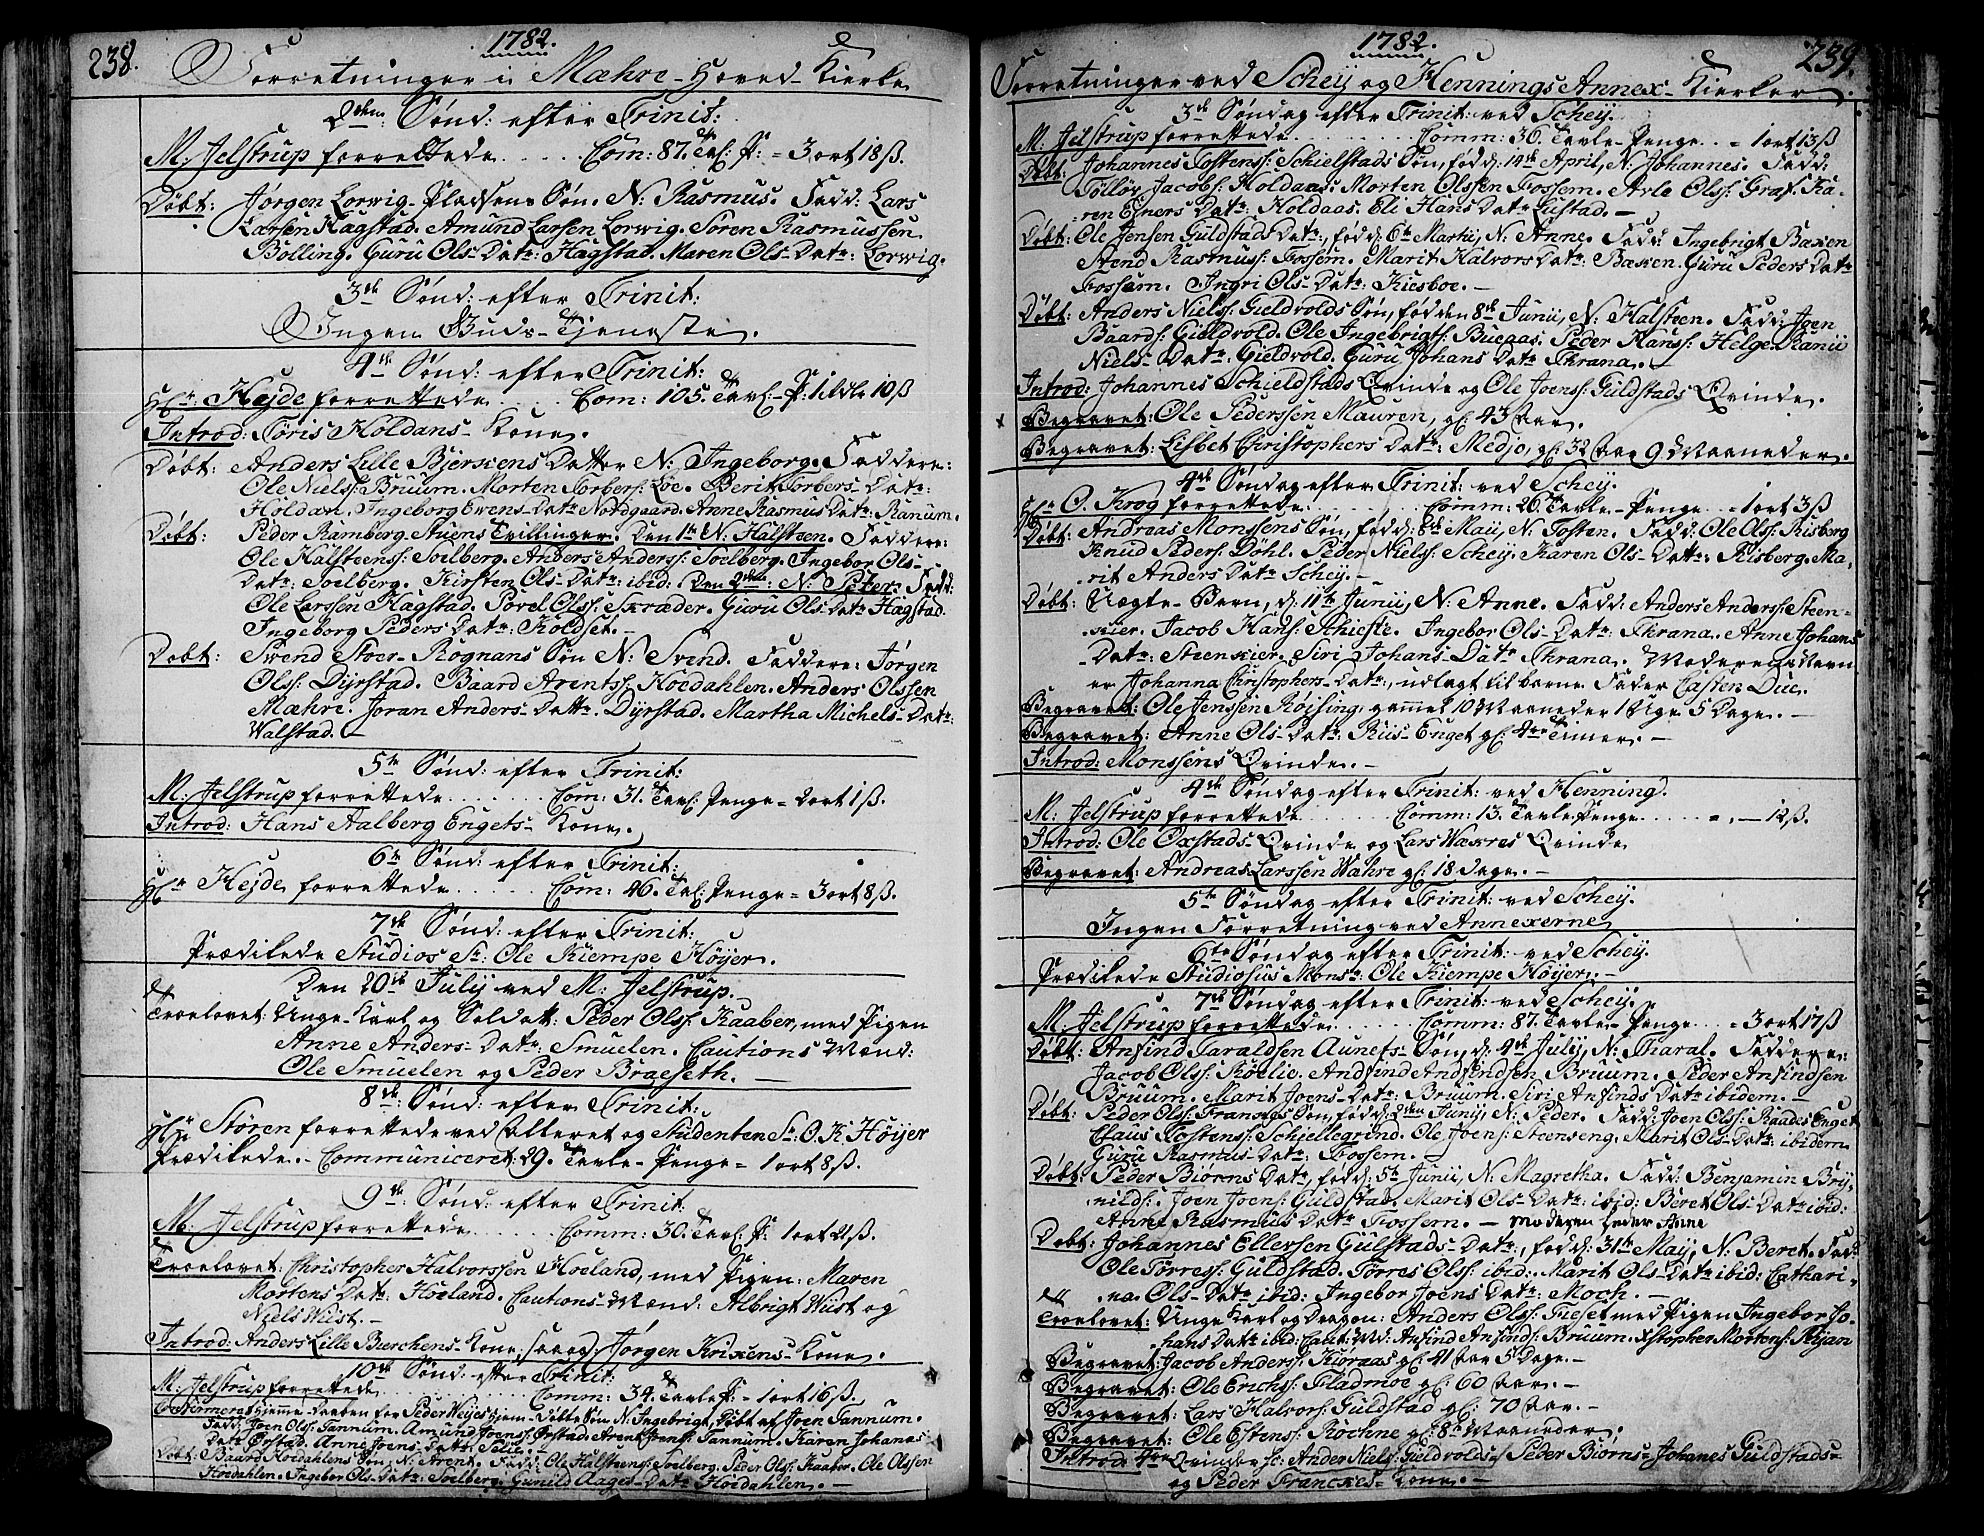 238.
1782.
Forretninger i Mæhre-Hoved-Kierke
2den Sønd: efter Trinit:
M. Jelstrup forrettede.... Com: 87. Tavl: P: = 3 ort 18 ß.
Døbt: Jørgen Lorwig-Pladsens Søn. N: Rasmus. Fadd: Lars
Larsen Hagstad. Amund Larsen Lorwig. Søren Rasmussen
Bølling. Guru Ols-Datr: Hagstad. Maren Ols-Datr: Lorwig.
3de Sønd: efter Trinit:
Ingen Guds-Tjeneste.
4de Sønd: efter Trinit:
Hr: Hejde forrettede.... Com: 105. Tavl:-P: 1 rdlr 10 ß
Introd: Tøris Holdans-Kone.
Døbt: Anders Lille Bjerkens Datter N: Ingeborg. Faddere:
Ole Niels: Bruum. Morten Torbers: Loe. Berit Torbers-Datr:
Holdan. Ingeborg Ewens-Datr Nordgaard. Anne Rasmus Datr: Ranum.
Døbt: Peder Ramberg Stuens Tvillinger. Den 1te N: Halsteen. Faddere:
Ole Halsteens: Soelberg. Anders Anderss: Soelberg. Ingebor Ols-
Datr: Soelberg. Kirsten Ols-Datr: ibid: Den 2den: N: Peter. Fadd:
Ole Larssen Hagstad. Povel Olss: Skræder. Guru Ols Datr Hagstad.
Ingeborg Peders Datr: Koldset.-
Døbt: Svend Stoer-Rognans Søn N: Svend. Faddere: Jørgen
Olss: Dyrstad. Baard Arentss: Hoedahlen. Anders Olssen
Mæhre. Joran Anders-Dattr. Dyrstad. Martha Michels-Datr:
Walstad.-
5te Sønd: efter Trinit:
M. Jelstrup forrettede....... Com: 31. Tavl: Penge = 2 ort 1 ß.
Introd: Hans Aalberg Engets-Kone.
6te Sønd: efter Trinit:
Hr: Hejde forrettede...... Com: 46. Tavl: Penge = 3 ort 8 ß.
7de Sønd: efter Trinit:
Prædikede Studios Sr: Ole Kiempe Høyer.
Den 20de July ved M: Jelstrup.
Troelovet: Unge-Karl og Soldatt: Peder Olss: Kaaber, med Pigen
Anne Anders-Datr: Smuelen. Cautions Mænd:
Ole Smuelen og Peder Braeseth.-
8de Sønd: efter Trinit:
Hr: Støren forrettede ved Alteret og Studenten Sr: O. K. Høyer
Prædikede.- Communiceret: 29. Tavle-Penge = 1 ort 8 ß.
9de: Sønd: efter Trinit:
M: Jelstrup forrettede...... Comm: 30. Tavl: P: 1 ort 21 ß.
Troelovet: Christopher Halvorssen Hoeland, med Pigen: Maren
Mortens Datr: Hoeland. Cautions-Mænd: Albrigt Wiist og
Niels Wiist.-
Introd: Anders Lille Berchens-Kone, saa og: Jørgen Krixens-Kone.
10de Sønd: efter Trinit:
M: Jelstrup forrettede........ Comm: 34. Tavle P: = 1 ort 16 ß.
Hjemme-Daaben for Peder Weyes hjem-Døbte Søn N: Ingebrigt, Døbt af Joen Tannum.
Fadd: Joen Olss: Tannum. Amund Joenss: Ørstad. Arent Tannum. Karen Johanas
Datr Ørstad. Anne Joens Datr
Døbt: Baard Hoedahlens Søn N: Arent. Fadd: Ole Halsteens: Soelberg. Peder Olss: Kaaber. Ole Olssen
Hoedahlen. Ingebor Ols-Datr: Soelberg. Gunild Aages-Datr Hoedahlen.-
1782.
239.
Forretninger ved Schey og Hennings Annex-Kierker.
3de Søndag efter Trinit: ved Schey.
M. Jelstrup forrettede............ Comm: 36. Tavle-Penge.. = 1 ort 13 ß
Døbt: Johannes Tostenss: Schielstads Søn, fød d: 14de April, N: Johannes. Fadd:
Tølløv Jacobs: Holdaas. Morten Olssen Fossem. Arle Olss: Graf. Ka-
ren Ejners Datr: Holdaas. Eli Hans Datr Lustad.-
Døbt: Ole Jensen Guldstads Datr:, fød d: 6te Martii, N: Anne. Fadd: Ingebrigt Baxen
Svend Rasmuss: Fossem. Marit Halvors Datr: Baxen. Guru Peders Datr
Fossem. Ingri Ols-Datr: Kiesboe.-
Døbt: Anders Nielss: Gieldvolds Søn, fød den 8de Junii, N: Halsteen. Fadd: Joen
Baards: Gieldvold. Ole Ingebrigts: Bueaas. Peder Hans: Helge-Ranii
Niels-Datr: Gieldvold. Guru Johans Datr Thrana.-
Introd: Johannes Schieldstads Qvinde og Ole Joenss: Guldstads Qvinde.
Begravet: Ole Pederssen Mauren, gl: 43 Aar.
Begravet: Lisbet Christophers Datr: Medjo, gl: 32 Aar 9 Maaneder.
4de Søndag efter Trinit: ved Schey.
Hr O. Krog forrettede............ Comm: 26. Tavle-Penge --- 1 ort 3 ß
Døbt: Andraas Monssens Søn, fød d: 8de Maii, N: Tosten. Fadd: Ole Olss: Risberg
Knud Peders: Döhl. Peder Nielss: Schey. Karen Ols-Datr: Risberg. Ma-
rit Anders Datr Schey.-
Døbt: Uægte-Barn, d: 11te Junii, N: Anne. Fadd: Anders Anderss: Steen-
kier. Jacob Hans: Schiefte. Ingebor Ols-Datr: Thrana. Anne Johans
-Datr: Steenkier. Siri Johans-Datr Thrana. Moderens Navn
er Johanna Christophers-Datr:, udlagt til barne Fader Casten Due.
Begravet: Ole Jenssen Røising, gammel 10 Maaneder 1 Uge 5 Dage.-
Begravet: Anne Ols-Datr: Ruis-Enget gl: 4re Timer.-
Introd: Monssens Qvinde.-
4de Søndag efter Trinit: ved Henning.
M: Jelstrup forrettede....... Comm: 13. Tavle Penge...... = . - 12 ß.
Introd: Ole Oxstads-Qvinde og Lars Waxres Qvinde
Begravet: Andreas Larssen Wahre gl: 18 Dage.-
5te Søndag efter Trinit: ved Schey.
Ingen Forretning ved Annexerne
6te Søndag efter Trinit: ved Schey.
Prædikede Studiosus Monsr: Ole Kiempe Høyer.-
7de Søndag efter Trinit: ved Schey.
M: Jelstrup forrettede...... Comm: 87. Tavle-Penge... = 3 ort 17 ß
Døbt: Anfind Taraldsen Aunets-Søn, d: 4de July, N: Tharal. Faddere:
Jacob Olss: Røelie. Andfind Andfindsen Bruum. Peder Anfindsen
Bruum. Marit Joens-Datr: Bruum. Siri Anfinds Datr ibidem.-
Døbt: Peder Olss: Fransgs Søn, fød d: 2den Junij, N: Peder. Fadd: Joen Olss: Raades Enget
Claus Tostenss: Schjellegrind. Ole Joens: Steenseng. Marit Ols-Datr: ibidem
Guru Rasmus-Datr: Fossem.-
Døbt: Peder Biørns Datr, fød d: 5te Junii, N: Magretha. Fadd: Benjamin Bry-
nilds: Joen Joens: Guldstad. Marit Ols-Datr: ibid: Beret Ols-Datr ibid:
Anne Rasmus Datr Fossem.- Moderen heder Anne
Døbt: Johannes Ellersen Gulstads-Datr:, fød d: 31te Maij, N: Beret. Fad:
Ole Tørress: Guldstad. Tørres Olss: ibid:. Marit Ols-Datr ibid: Cathari-
na Ols-Datr ibid: Ingebor Joens Datr: Moch.-
Troelovet: Unge Karl og Dragon: Anders Olss: Tieset med Pigen Ingebor Jo-
hans Datr ibid: Caut: Md: Anfind Anfinds: Bruum. Xstopher Mortens: Schjan
Begravet: Jacob Anderss: Kiøraas gl: 41 Aar 5 Dage.-
Begravet: Ole Erichss: Fladmoe gl: 60 Aar.-
Begravet: Lars Halvors: Guldstad gl: 70 Aar.-
Begravet: Ole Estenss: Kochne gl: 8te Maaneder.
Introd: 4re Qvinder sc: Ander Niels: Gieldvolds-/ Peder Biørns-Johanes Guldstads-
og Peder Franckes-Kone.-